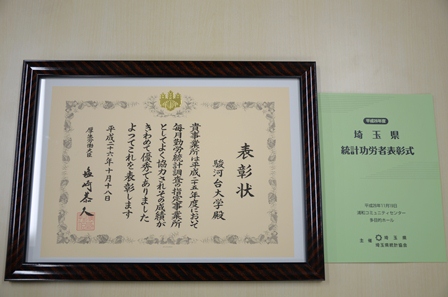 表彰状
駿河台大学殿
貴事業所は平成二十五年度において
毎月勤労統計調査の指定事業所
としてよく協力されその成績が
きわめて優秀でありました
よってこれを表彰します
平成二十六年十月十八日
厚生労働大臣
塩崎恭久
平成26年度
埼玉県
統計功労者表彰式
平成26年11月19日
浦和コミュニティセンター
多目的ホール
主催
埼玉県
埼玉県統計協会